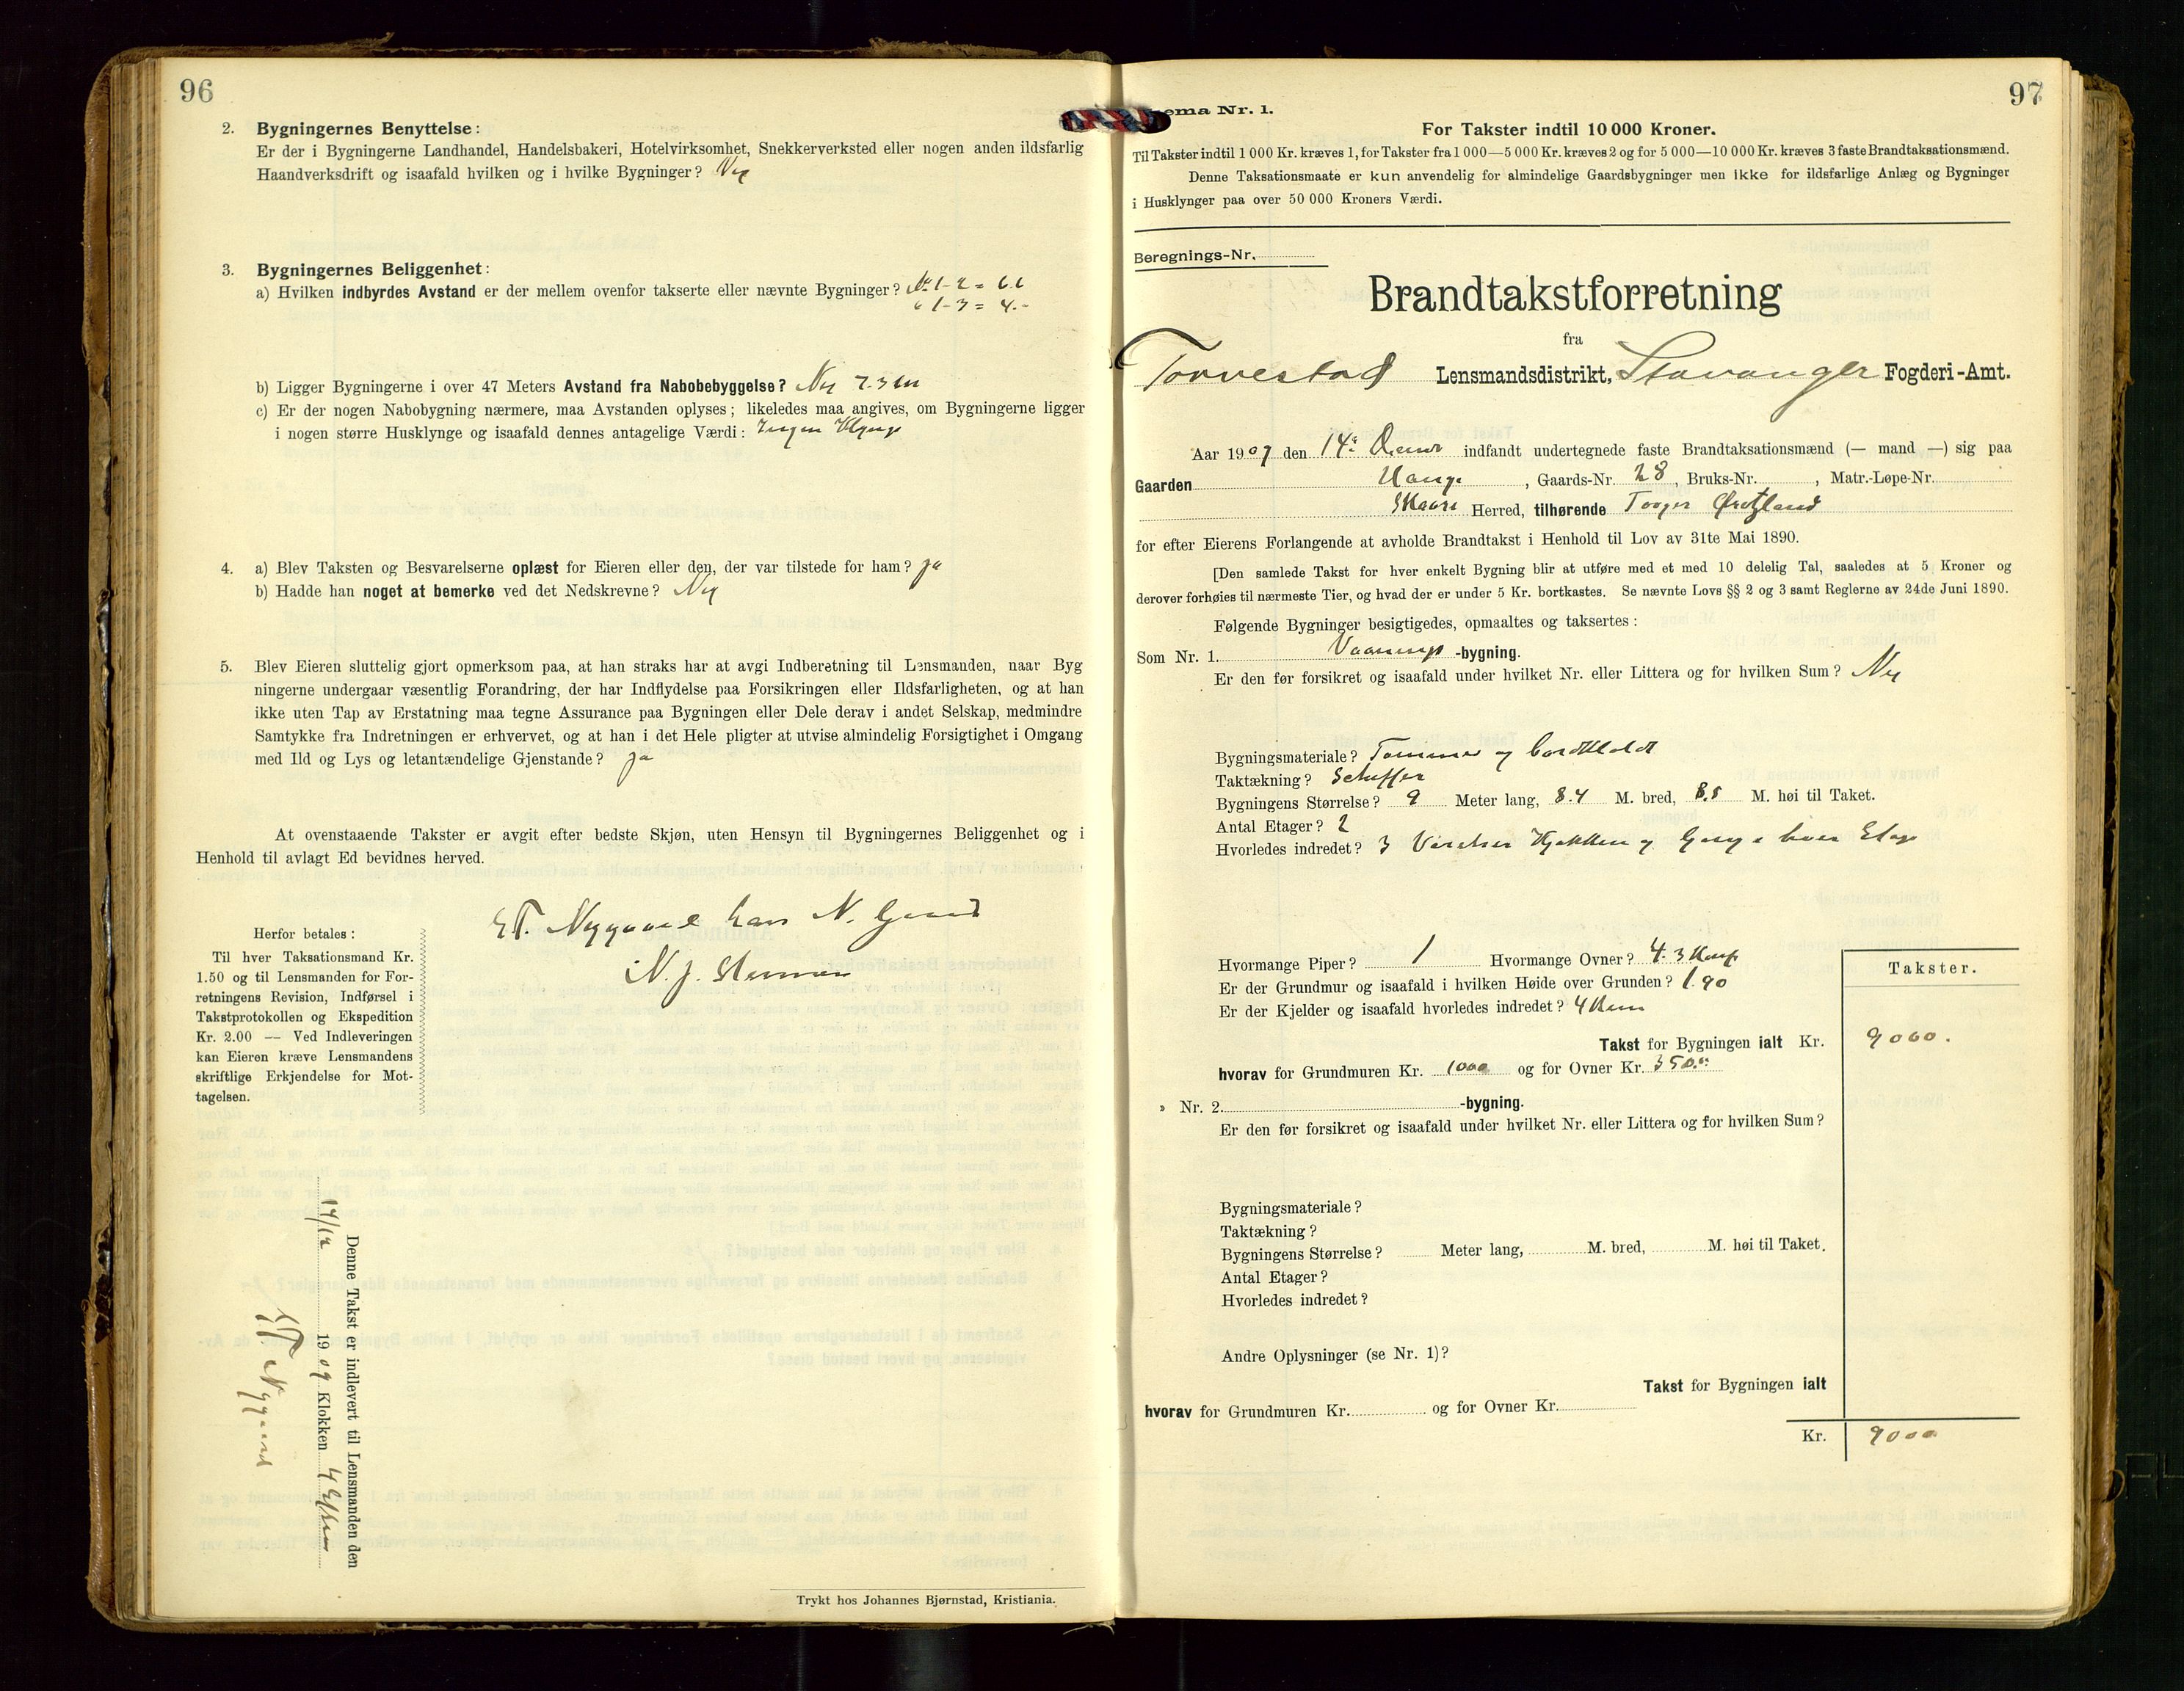 96
2. Bygningernes Benyttelse:
Er der i Bygningerne Landhandel, Handelsbakeri, Hotelvirksomhet, Snekkerverksted eller nogen anden ildsfarlig
Haandverksdrift og isaafald hvilken og i hvilke Bygninger? Nej
3. Bygningernes Beliggenhet:
a) Hvilken indbyrdes Avstand er der mellem ovenfor takserte eller nævnte Bygninger? No 1-2 = 6.6
" 1-3 = 4.-
b) Ligger Bygningerne i over 47 Meters Avstand fra Nabobebyggelse? Nej 7.3 m
c) Er der nogen Nabobygning nærmere, maa Avstanden oplyses; likeledes maa angives, om Bygningerne ligger
i nogen større Husklynge og isaafald dennes antagelige Værdi: Ingen Klynge
4. a) Blev Taksten og Besvarelserne oplæst for Eieren eller den, der var tilstede for ham? Ja
b) Hadde han noget at bemerke ved det Nedskrevne? Nej
5. Blev Eieren sluttelig gjort opmerksom paa, at han straks har at avgi Indberetning til Lensmanden, naar Byg
ningerne undergaar væsentlig Forandring, der har Indflydelse paa Forsikringen eller Ildsfarligheten, og at han
ikke uten Tap av Erstatning maa tegne Assurance paa Bygningen eller Dele derav i andet Selskap, medmindre
Samtykke fra Indretningen er erhvervet, og at han i det Hele pligter at utvise almindelig Forsigtighet i Omgang
med Ild og Lys og letantændelige Gjenstande? Ja
At ovenstaaende Takster er avgit efter bedste Skjøn, uten Hensyn til Bygningernes Beliggenhet og i
Henhold til avlagt Ed bevidnes herved.
ET. Nygaard Lars N. Gaard
N. J. Steensen
Herfor betales:
Til hver Taksationsmand Kr.
1.50 og til Lensmanden for For-
retningens Revision, Indførsel i
Takstprotokollen og Ekspedition
Kr. 2.00 — Ved Indleveringen
kan Eieren kræve Lensmandens
skriftlige Erkjendelse for Mot-
tagelsen.
Denne Takst er indlevert til Lensmanden den
14/12 1909 Klokken 4 Efterm
ET. Nygaard
Trykt hos Johannes Bjørnstad, Kristiania.
97
ema Nr. 1.
For Takster indtil 10 000 Kroner.
Til Takster indtil 1 000 Kr. kræves 1, for Takster fra 1 000—5 000 Kr. kræves 2 og for 5 000—10 000 Kr. kræves 3 faste Brandtaksationsmænd.
Denne Taksationsmaate er kun anvendelig for almindelige Gaardsbygninger men ikke for ildsfarlige Anlæg og Bygninger
i Husklynger paa over 50 000 Kroners Værdi.
Beregnings-Nr.
Brandtakstforretning
fra
Torvestad Lensmandsdistrikt, Stavanger Fogderi-Amt.
Aar 1909 den 14de indfandt undertegnede faste Brandtaksationsmænd (— mand —) sig paa
Gaarden Hauge, Gaards-Nr. 28, Bruks-Nr. , Matr.-Løpe-Nr.
Skaare Herred, tilhørende Torger
for efter Eierens Forlangende at avholde Brandtakst i Henhold til Lov av 31te Mai 1890.
[Den samlede Takst for hver enkelt Bygning blir at utføre med et med 10 delelig Tal, saaledes at 5 Kroner og
derover forhøies til nærmeste Tier, og hvad der er under 5 Kr. bortkastes. Se nævnte Lovs §§ 2 og 3 samt Reglerne av 24de Juni 1890.
Følgende Bygninger besigtigedes, opmaaltes og taksertes:
Som Nr. 1. Vaanings -bygning.
Er den før forsikret og isaafald under hvilket Nr. eller Littera og for hvilken Sum? Nej
Bygningsmateriale? Tømmer og bordklædt
Taktækning? Schiffer
Bygningens Størrelse? 9 Meter lang, 8.4 M. bred, 8.5 M. høi til Taket.
Antal Etager? 2
Hvorledes indredet? 3 Værelser Kjøkken og Gang i hver Etage
Hvormange Piper? 1 Hvormange Ovner? 4. 3 Komf
Er der Grundmur og isaafald i hvilken Høide over Grunden? 1.90
Er der Kjelder og isaafald hvorledes indredet? 4 Rum
Takster.
Takst for Bygningen ialt Kr. 9000.
hvorav for Grundmuren Kr. 1000 og for Ovner Kr. 350.00
» Nr. 2. -bygning.
Er den før forsikret og isaafald under hvilket Nr. eller Littera og for hvilken Sum?
Bygningsmateriale?
Taktækning?
Bygningens Størrelse? Meter lang, M. bred, M. høi til Taket.
Antal Etager?
Hvorledes indredet?
Andre Oplysninger (se Nr. 1)?
Takst for Bygningen ialt
hvorav for Grundmuren Kr. og for Ovner Kr.
Kr. 9000